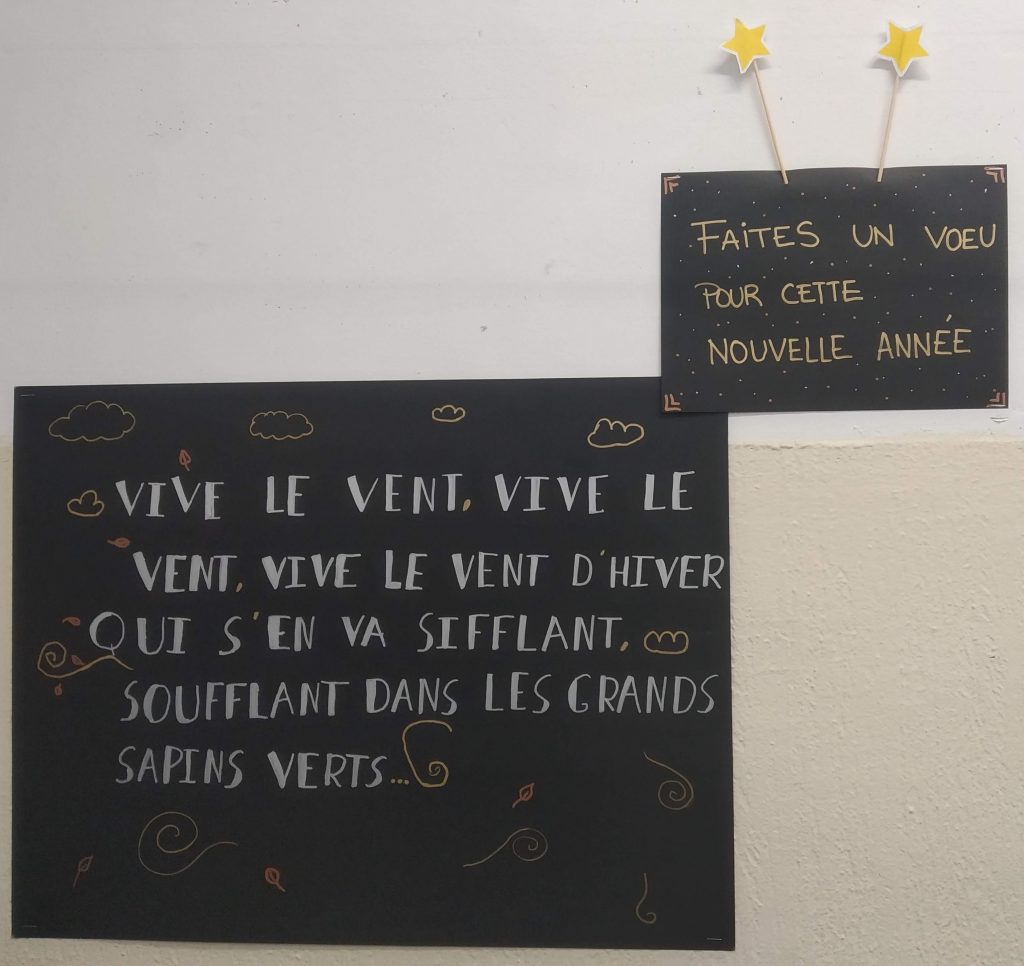 FAITES UN VOEU
POUR CETTE
NOUVELLE ANNÉE
VIVE LE VENT, VIVE LE
VENT, VIVE LE VENT D'HIVER
QUI S'EN VA SIFFLANT,
SOUFFLANT DANS LES GRANDS
SAPINS VERTS...